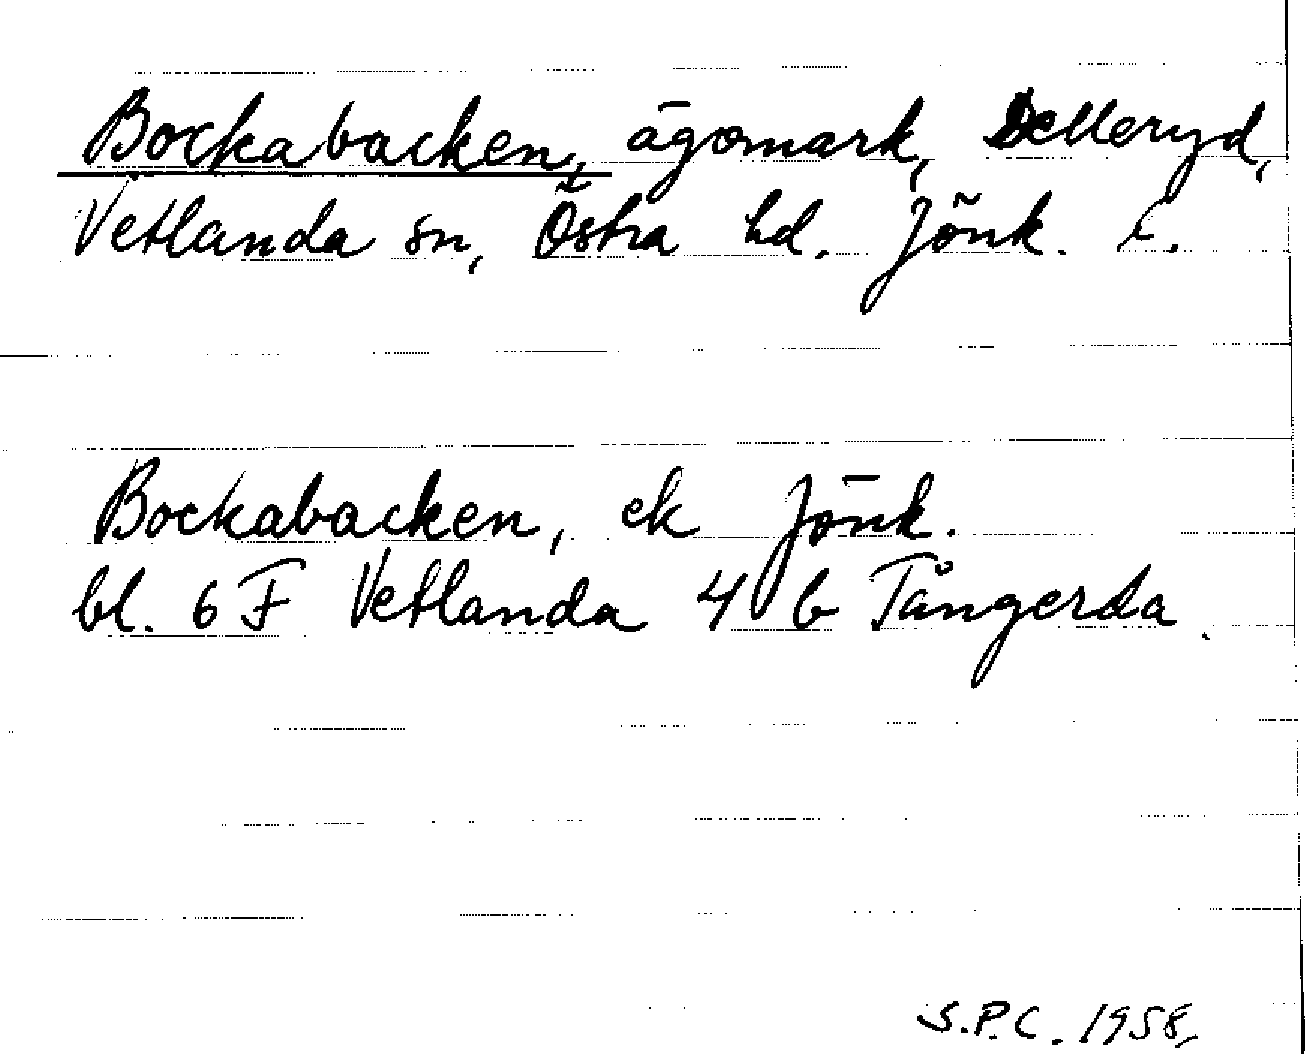 Bockabacken, ägomark, Delleryd,
Vetlanda sn, Östra hd. Jönk. l.
Bockabacken, ek Jönk.
bl. 6 F Vetlanda 4 b Tångerda.
S.P.C. 1958,